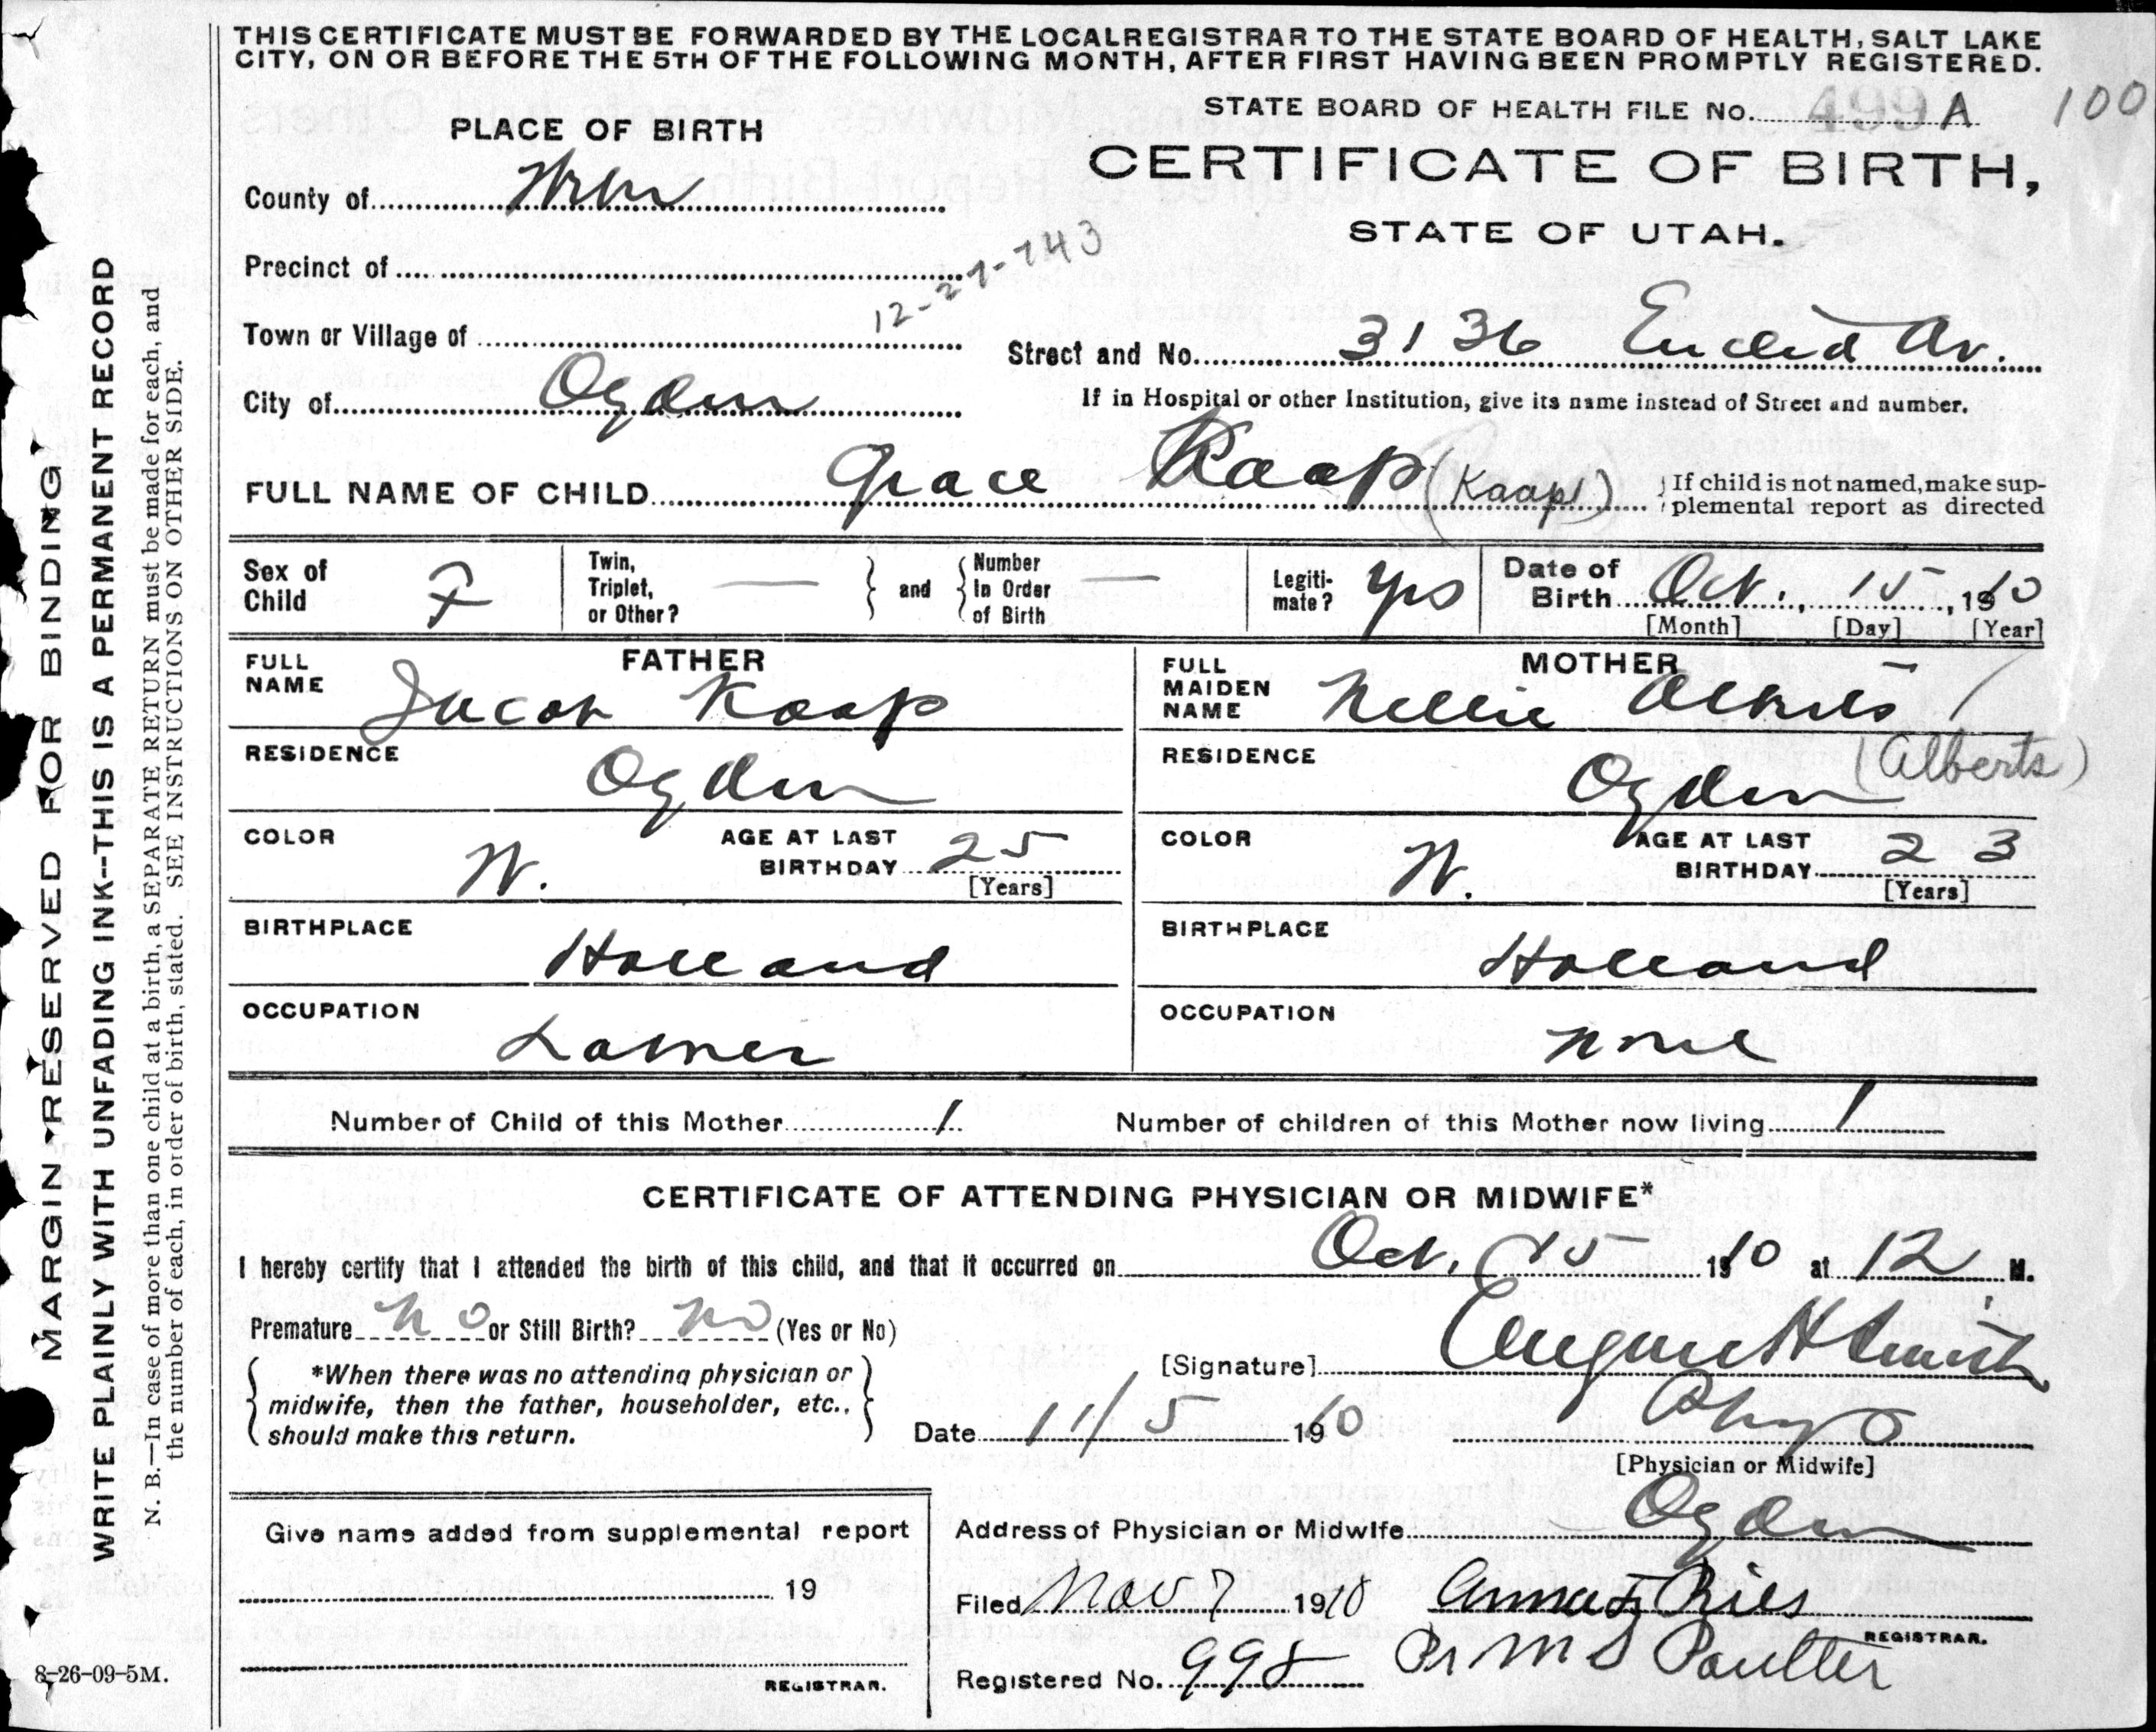 THIS CERTIFICATE MUST BE FORWARDED BY THE LOCAL REGISTRAR TO THE STATE BOARD OF HEALTH, SALT LAKE
CITY, ON OR BEFORE THE 5TH OF THE FOLLOWING MONTH, AFTER FIRST HAVING BEEN PROMPTLY REGISTERED.
STATE BOARD OF HEALTH FILE No. 499 A 100
PLACE OF BIRTH
CERTIFICATE OF BIRTH,
STATE OF UTAH.
County of
Precinct of
12-27-143
Town or Village of
Street and No. 3136 Euclid Av.
City of Ogden
If in Hospital or other Institution, give its name instead of Street and number.
FULL NAME OF CHILD Grace Kaap (Kaap)
If child is not named, make sup-
plemental report as directed
Sex of Child F
Twin, Triplet, or Other? —
and
Number In Order of Birth —
Legiti-mate? yes
Date of Birth Oct. 15, 1910
[Month] [Day] [Year]
FATHER
FULL NAME Jacob Kaap
RESIDENCE Ogden
COLOR W.
AGE AT LAST BIRTHDAY 25
[Years]
BIRTHPLACE Holland
OCCUPATION Laborer
MOTHER
FULL MAIDEN NAME Nellie Alberts
(Alberts)
RESIDENCE Ogden
COLOR W.
AGE AT LAST BIRTHDAY 23
[Years]
BIRTHPLACE Holland
OCCUPATION None
Number of Child of this Mother 1
Number of children of this Mother now living 1
CERTIFICATE OF ATTENDING PHYSICIAN OR MIDWIFE*
I hereby certify that I attended the birth of this child, and that it occurred on Oct. 15 1910 at 12 M.
Premature No or Still Birth? No (Yes or No)
*When there was no attending physician or
midwife, then the father, householder, etc.,
should make this return.
[Signature] H Smith
Date 11/5 1910
Phys
[Physician or Midwife]
Give name added from supplemental report
19
REGISTRAR.
Address of Physician or Midwife Ogden
Filed Nov 7 1910 Anna Ries
REGISTRAR.
Registered No. 998 Pr M S Poulter
MARGIN RESERVED FOR BINDING
WRITE PLAINLY WITH UNFADING INK--THIS IS A PERMANENT RECORD
N. B.—In case of more than one child at a birth, a SEPARATE RETURN must be made for each, and
the number of each, in order of birth, stated. SEE INSTRUCTIONS ON OTHER SIDE.
8-26-09-5M.